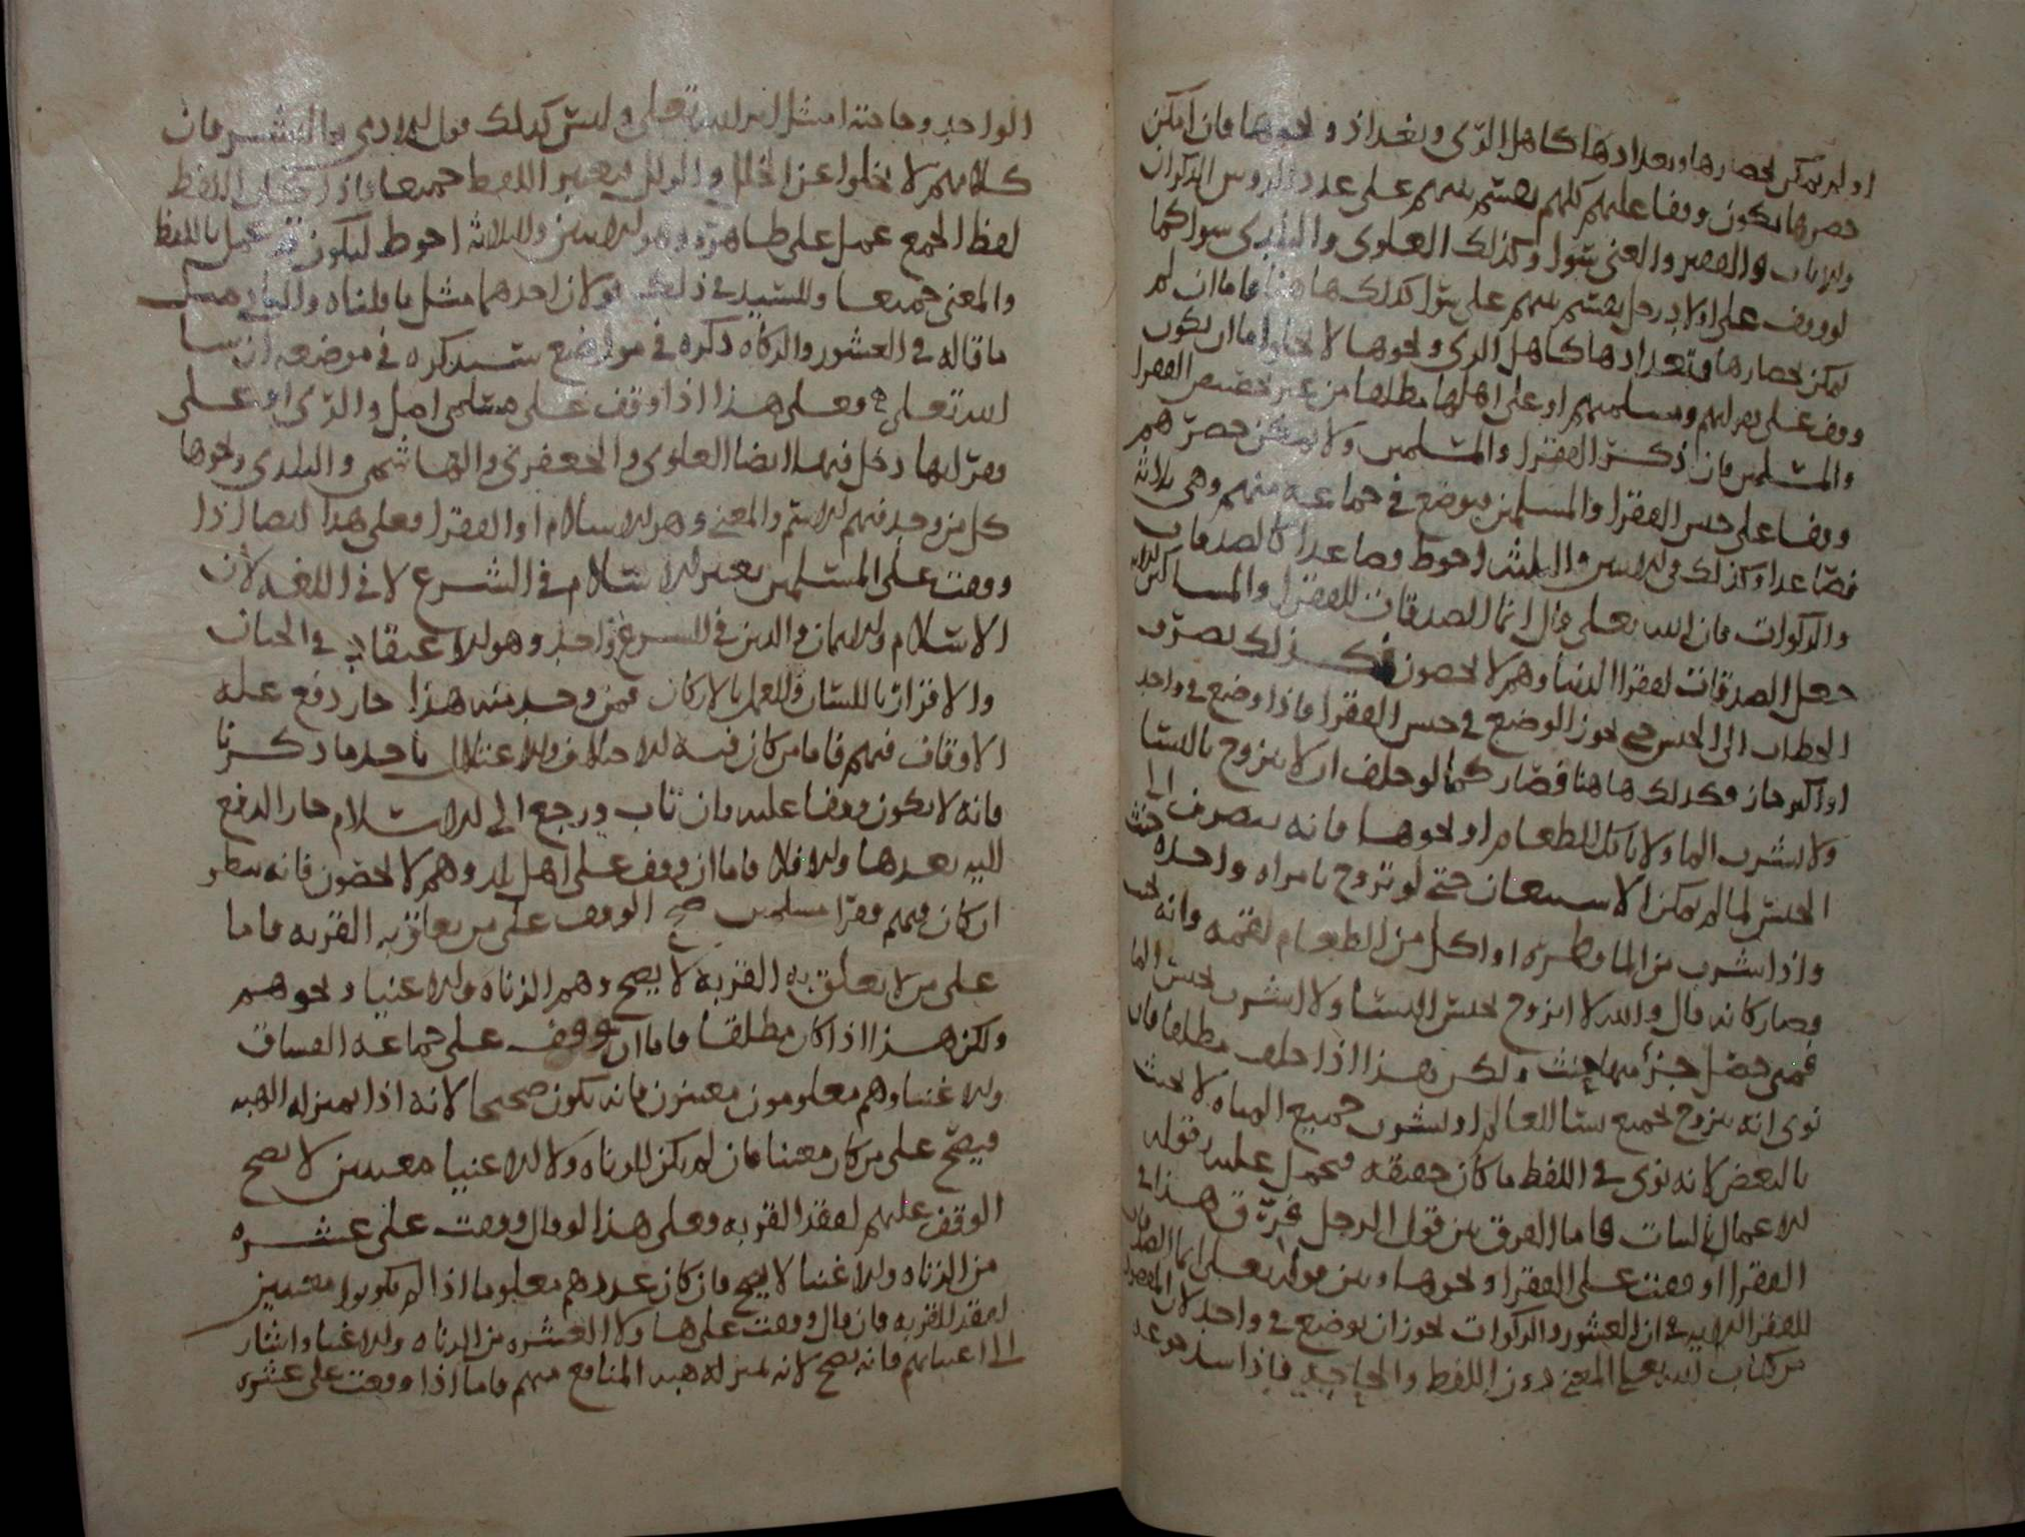 او لم يمكن احصارها وتعدادها كاهل الرى وبغداذ ونحوها فان امكن
حصرها يكون وقفا عليهم كلهم يقسم بينهم على عدد الروس الذكران
والاناث والفقير والغنى سوا وكذلك العلوى والبلدى سوا كما
لو وقف على اولاد رجل يقسم بينهم على سوا كذلك هاهنا فاما ان لم
يمكن احصارها وتعدادها كاهل الرى ونحوها لا يخلوا ما ان يكون
وقف على فقرايهم ومسلميهم او على اهلها مطلقا من غير تخصيص الفقرا
والمسلمين فان ذكر الفقرا والمسلمين ولا يمكن حصرهم
وقفا على جنس الفقرا والمسلمين فيوضع في جماعه منهم وهى ثلاثه
فصاعدا وكذلك في الاثنين والثلث احوط وصاعدا كالصدقات
والزكوات فان الله تعلى قال انما الصدقات للفقرا والمساكين
جعل الصدقات لفقرا الدنيا وهم لا يحصون فكذلك يصرف
الخطاب الى الجنس حتى يجوز الوضع في جنس الفقرا فاذا وضع في واحد
او اكثر جاز فكذلك هاهنا فصار كما لو حلف ان لا يتزوج بالنسا
ولا يشرب الما ولا ياكل الطعام او نحوها فانه ينصرف الى
الجنس لما لم يمكن الاستيعاب حتى لو تزوج بامراه واحده حنث
واذا شرب من الما قطره او اكل من الطعام لقمه وانه يحنث
وصار كانه قال والله لا اتزوج بجنس النسا ولا اشرب بجنس الما
فمتى حصل جزا منها حنث ولكن هذا اذا حلف مطلقا فان
نوى انه يتزوج بجميع نسا العالم او يشرب جميع المياه لا يحنث
بالبعض لانه نوى في اللفظ ما كان حقيقه فحمل عليه لقوله
الاعمال بالنيات فاما الفرق بين قول الرجل فرق هذا في
الفقرا او وقفت على الفقرا ونحوها وبين قوله تعلى انما الصدقات
للفقرا الايه في ان العشور والزكوات يجوز ان يوضع في واحد لان المقصود
من كتاب الله تعلى المعنى دون اللفظ والحاجه فاذا سد جوعه
الواحد وحاجته امتثل امر الله تعلى وليس كذلك قول الادمى والبشر فان
كلامهم لا يخلوا عن الخلل والزلل فيعتبر اللفظ جميعا فاذا كان اللفظ
لفظ الجمع عمل على ظاهره وهو الاثنين والثلاثه احوط ليكون قد عمل باللفظ
والمعنى جميعا وللسيد في ذلك قولان احدهما مثل ما قلناه والثاني مثل
ما قاله في العشور والزكاه ذكره في مواضع سنذكره في موضعه ان شا
الله تعلى وعلى هذا اذا وقف على مسلمى امل والرى او على
فقرايها دخل فيها ايضا العلوى والجعفرى والهاشمى والبلدى ونحوها
كل من وجد فيهم الاسم والمعنى وهو الاسلام او الفقر فعلى هذا ايضا اذا
وقفت على المسلمين يعتبر الاسلام في الشرع لا في اللغه لان
الاسلام والايمان والدين في الشرع واحد وهو الاعتقاد في الجنان
والاقرار باللسان والعمل بالاركان فمن وجد منه هذا جاز دفع غله
الاوقاف فيهم فاما من كان فيه الاختلاف والاعتلال باحد ما ذكرنا
فانه لا يكون وقفا عليه وان تاب ورجع الى الاسلام جاز الدفع
اليه بعدها والا فلا فاما ان وقف على اهل بلد وهم لا يحصون فانه ينظر
ان كان فيهم فقرا مسلمين صح الوقف على من يعلق به القربه فاما
على من لا يعلق به القربه لا يصح وهم الزناه والاغنيا ونحوهم
ولكن هذا اذا كان مطلقا فاما ان وقف على جماعه الفساق
والاغنيا وهم معلومون معينون فانه يكون صحيحا لانه اذا بمنزله الهبه
فيصح على من كان معينا فان لم يكن الزناه ولا الاغنيا معينين لا يصح
الوقف عليهم لفقد القربه وعلى هذا لو قال وقفت على عشره
من الزناه والاغنيا لا يصح فان كان عددهم معلوما اذا لم يكونوا معينين
لفقد القربه فان قال وقفت على هاولا العشره من الزناه والاغنيا واشار
الى اعيانهم فانه يصح لانه بمنزله هبه المنافع منهم فاما اذا وقفت على عشره